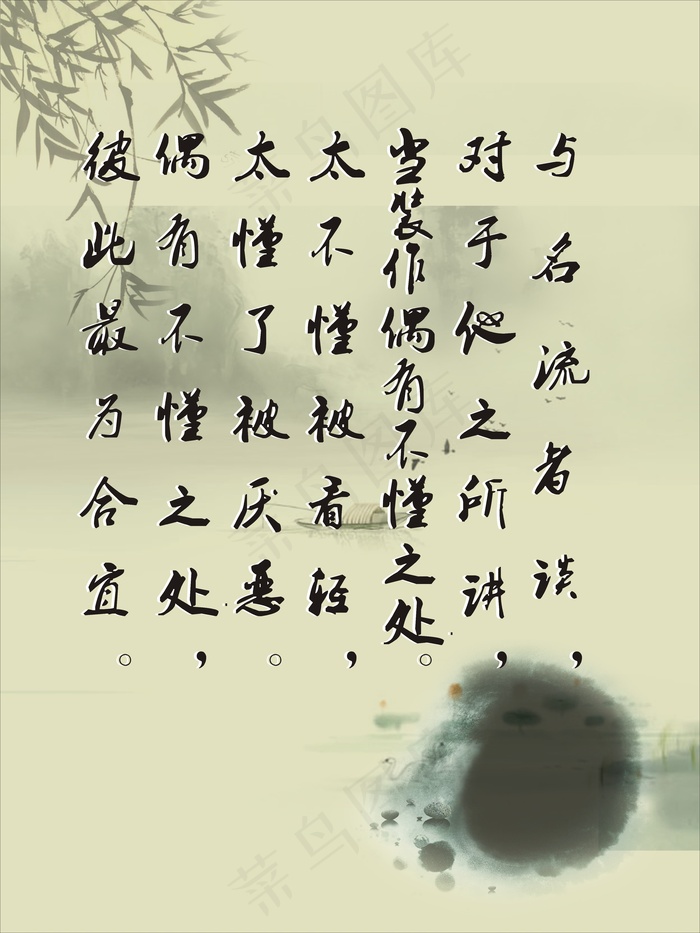 与名流者谈，
对于他之所讲，
当装作偶有不懂之处。
太不懂被看轻，
太懂了被厌恶。
偶有不懂之处，
彼此最为合宜。
菜鸟图库
菜鸟图库
菜鸟图库